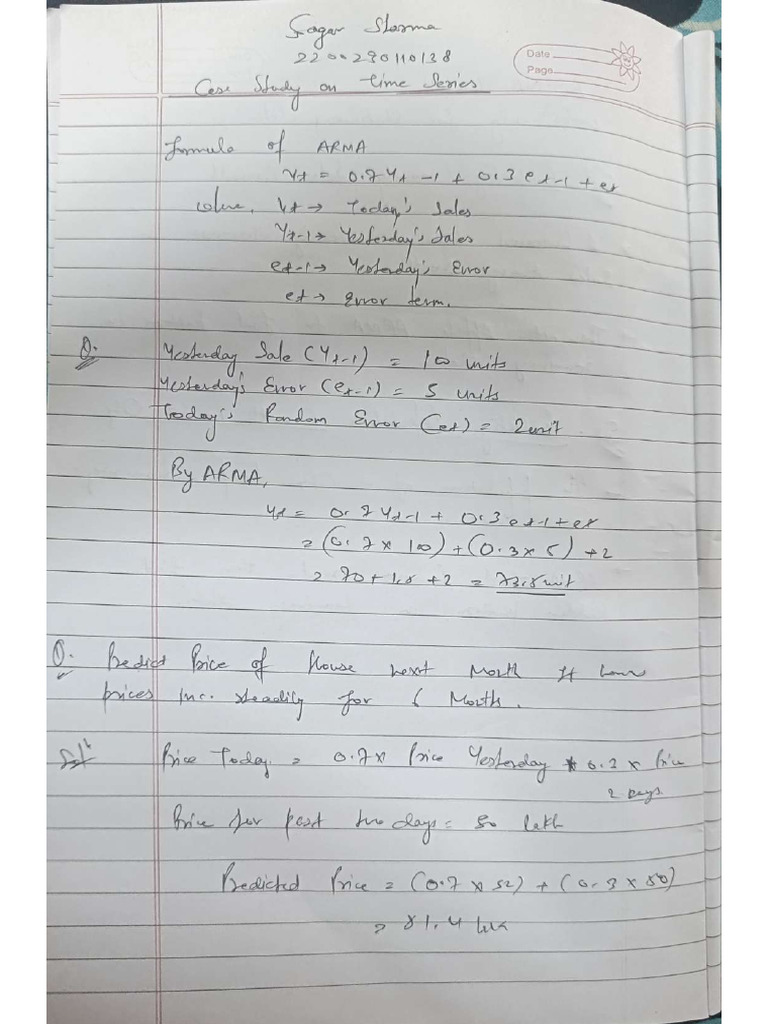 Sagar Sharma
2200290110138
Date
Page
Case Study on Time Series
Formula of ARMA
Yt = 0.7Yt-1 + 0.3et-1 + et
where, Yt → Today's Sales
Yt-1 → Yesterday's Sales
et-1 → Yesterday's Error
et → Error term.
Q. Yesterday Sale (Yt-1) = 100 units
Yesterday's Error (et-1) = 5 units
Today's Random Error (et) = 2unit
By ARMA,
yt = 0.7Yt-1 + 0.3et-1 + et
= (0.7 x 100) + (0.3 x 5) + 2
= 70 + 1.5 + 2 = 73.5unit
Q. Predict Price of House next Month If
prices Inc. steadily for 6 Month.
Price Today = 0.7x Price Yesterday + 0.3 x Price
2 Days
Price for past two days = 50 lakh
Predicted Price = (0.7 x 52) + (0.3 x 50)
= 51.4